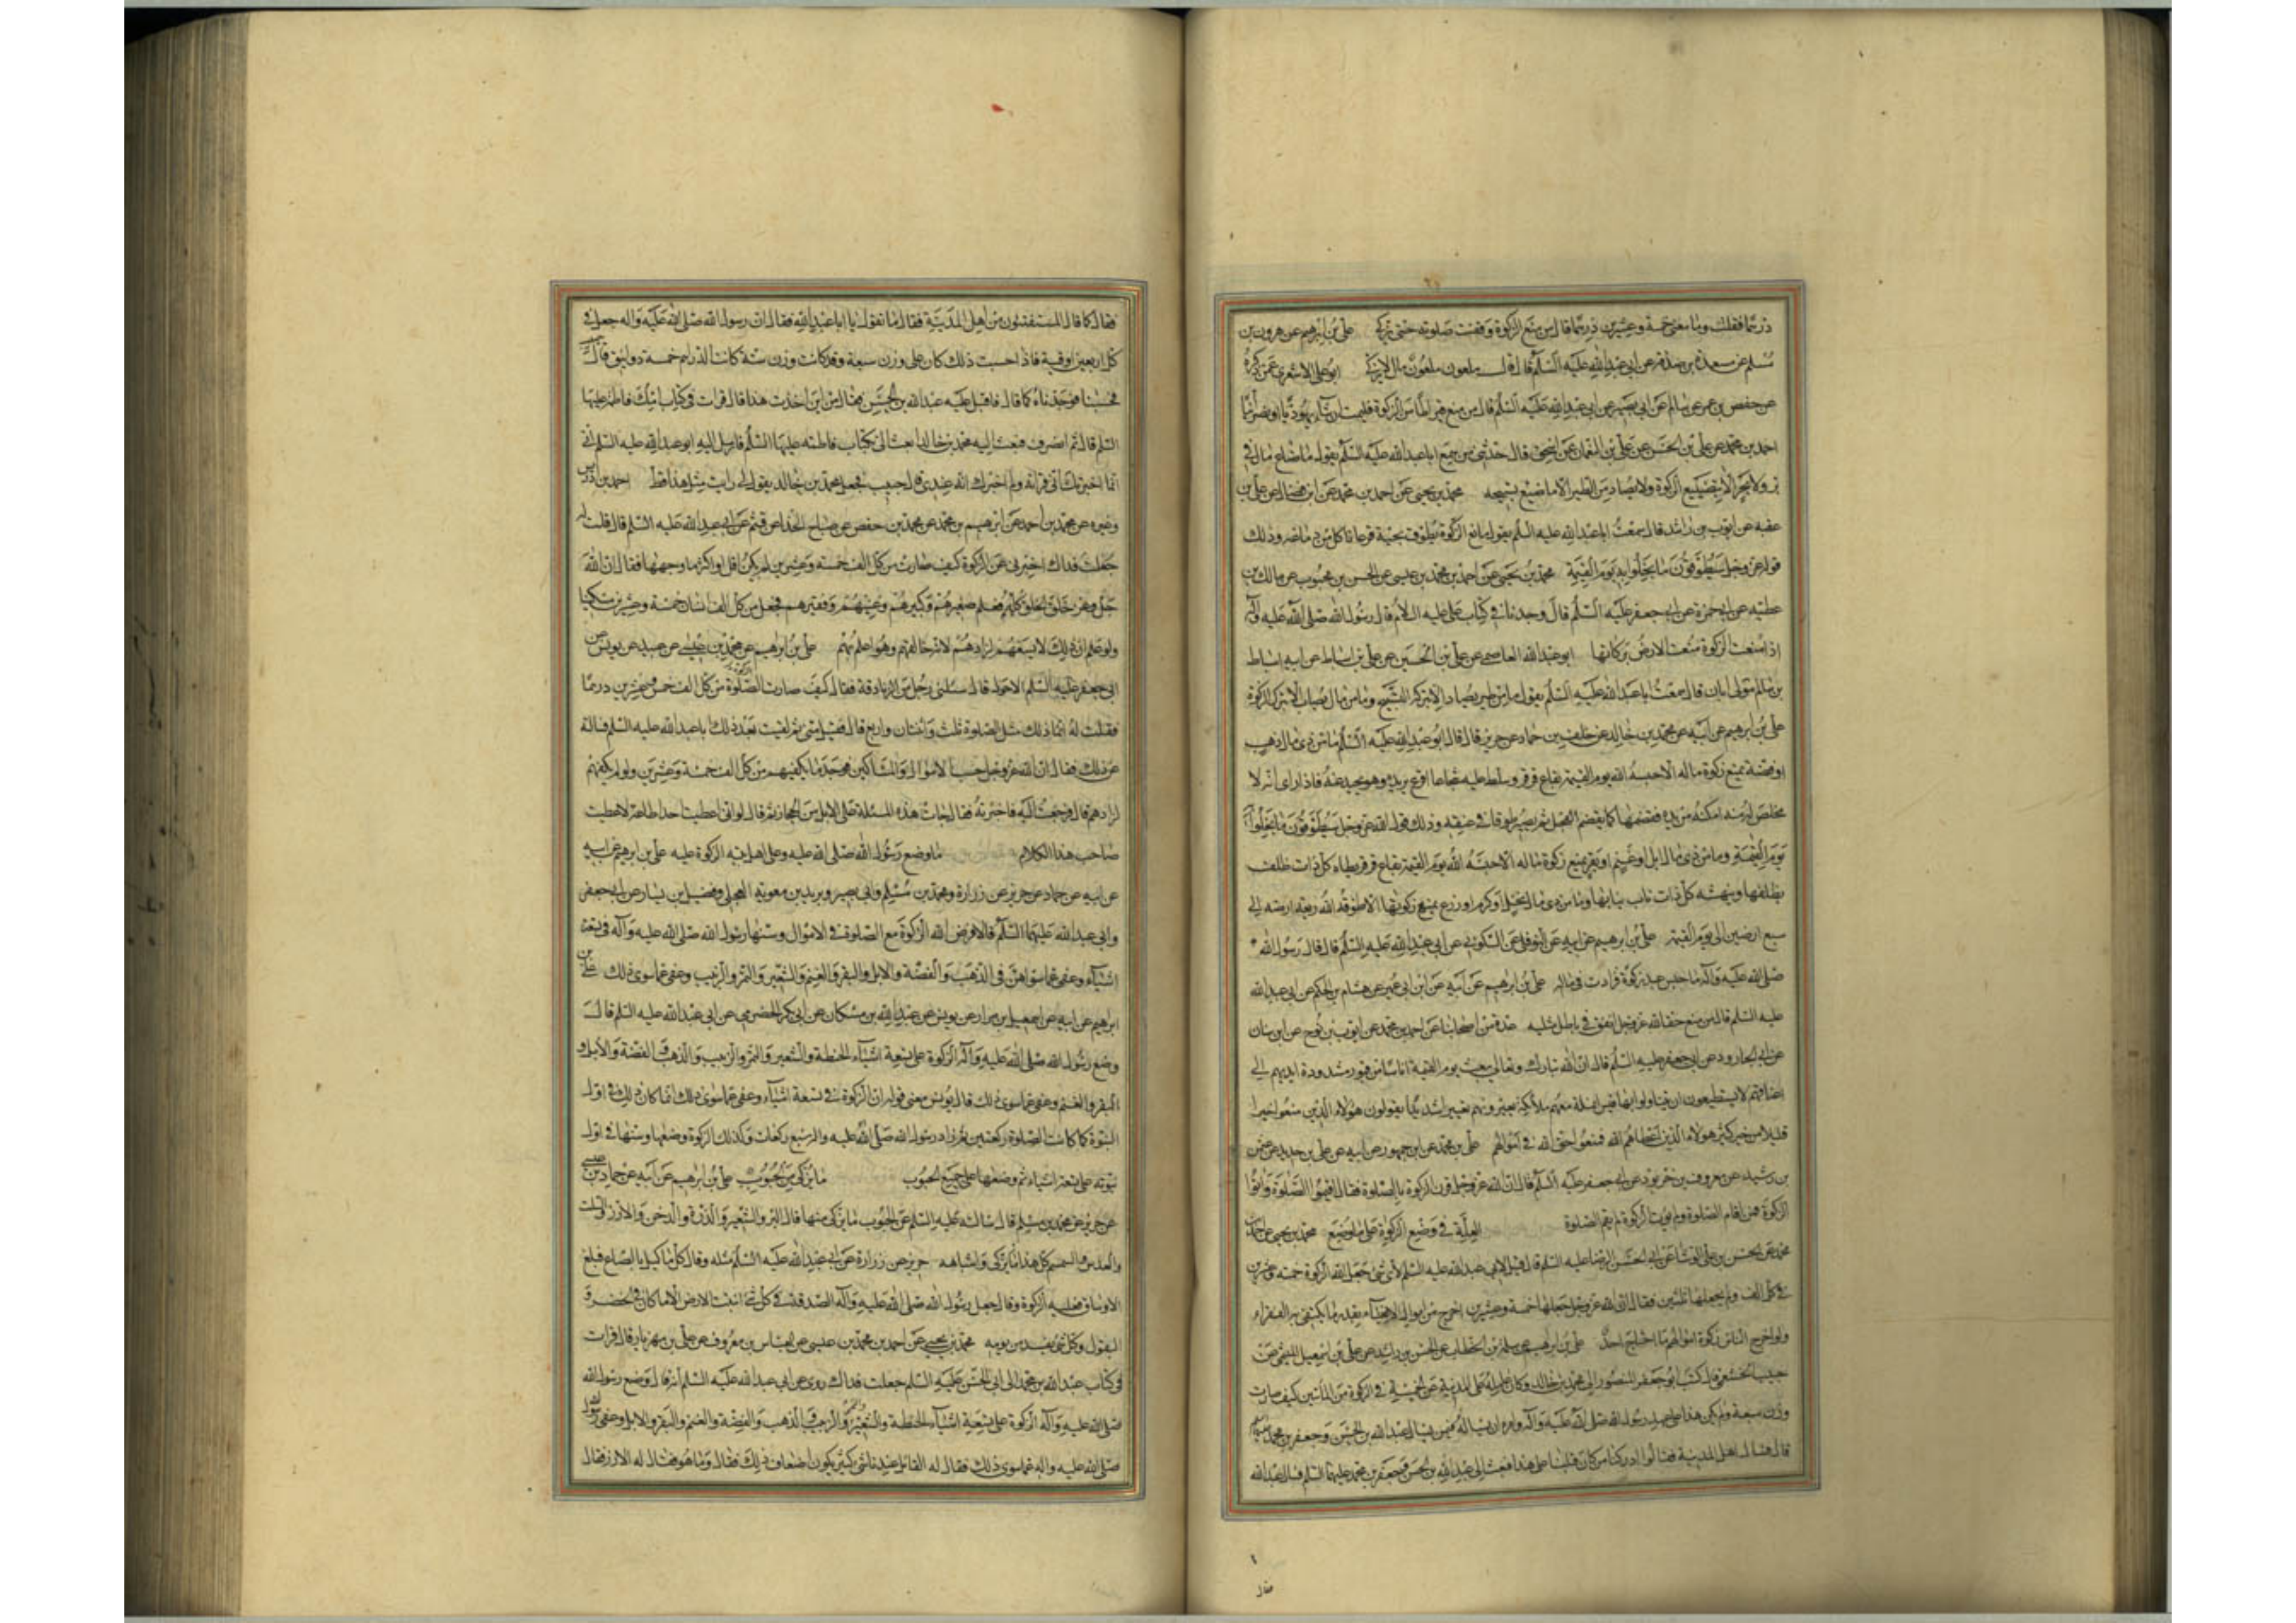 درهما فقلت وما معنى خمسة وعشرين درهما قال من منع الزكوة وقفت صلوته حتى يزكى علي بن ابرهيم عن هرون بن
مسلم عن مسعدة بن صدقة عن ابي عبد الله عليه السلم قال قال ملعون ملعون مال لا يزكى ابو علي الاشعري عمن ذكره
عن حفص بن عمر عن سالم عن ابي بصير عن ابي عبد الله عليه السلم قال من منع قيراطا من الزكوة فليمت ان شاء يهوديا او نصرانيا
احمد بن محمد عن علي بن الحسن عن علي بن النعمان عن اسحق قال حدثني من سمع ابا عبد الله عليه السلم يقول ما ضاع مال في
بر ولا بحر الا بتضييع الزكوة ولا يصاد من الطير الا ما ضيع تسبيحه محمد بن يحيى عن احمد بن محمد عن ابن فضال عن علي بن
عقبه عن ايوب بن راشد قال سمعت ابا عبد الله عليه السلم يقول مانع الزكوة يطوق بحية قرعا تاكل من دماغه وذلك
قوله عز وجل سيطوقون ما بخلوا به يوم القيمة محمد بن يحيى عن احمد بن محمد بن عيسى عن الحسن بن محبوب عن مالك بن
عطيه عن ابي حمزة عن ابي جعفر عليه السلم قال وجدنا في كتاب علي عليه السلام قال رسول الله صلى الله عليه وآله
اذا منعت الزكوة منعت الارض بركاتها ابو عبد الله العاصمي عن علي بن الحسين عن علي بن اسباط عن ابيه اسباط
بن سالم مولى ابان قال سمعت ابا عبد الله عليه السلم يقول ما من طير يصاد الا بتركه التسبيح وما من مال يصاب الا بترك الزكوة
علي بن ابرهيم عن ابيه عن محمد بن خالد عن خلف بن حماد عن حريز قال قال ابو عبد الله عليه السلم ما من ذي مال ذهب
او فضة يمنع زكوة ماله الا حبسه الله يوم القيمة بقاع قرقر وسلط عليه شجاعا اقرع يريده وهو يحيد عنه فاذا راى انه لا
مخلص له منه امكنه من يده فقضمها كما يقضم الفجل ثم يصير طوقا في عنقه وذلك قول الله عز وجل سيطوقون ما بخلوا به
يوم القيمة وما من ذي مال ابل او غنم او بقر يمنع زكوة ماله الا حبسه الله يوم القيمة بقاع قرقر يطاه كل ذات ظلف
بظلفها وينهشه كل ذات ناب بنابها وما من ذي مال نخيل او كرم او زرع يمنع زكوتها الا طوقه الله ريعة ارضه الى
سبع ارضين الى يوم القيمة علي بن ابرهيم عن ابيه عن النوفلي عن السكوني عن ابي عبد الله عليه السلم قال قال رسول الله
صلى الله عليه وآله ما حبس عبد زكوة فزادت في ماله علي بن ابرهيم عن ابيه عن ابن ابي عمير عن هشام بن الحكم عن ابي عبد الله
عليه السلم قال من منع حقا لله عز وجل انفق في باطل مثليه عدة من اصحابنا عن احمد بن محمد عن ايوب بن نوح عن ابن سنان
عن ابي الجارود عن ابي جعفر عليه السلم قال ان الله تبارك وتعالى يبعث يوم القيمة اناسا من قبورهم مشدودة ايديهم الى
اعناقهم لا يستطيعون ان يتناولوا بها قيس انملة معهم ملائكة يعيرونهم تعييرا شديدا يقولون هؤلاء الذين منعوا خيرا
قليلا من خير كثير هؤلاء الذين اعطاهم الله فمنعوا حق الله في اموالهم علي بن محمد عن ابن جمهور عن ابيه عن علي بن حديد عن عثمن
بن رشيد عن معروف بن خربوذ عن ابي جعفر عليه السلم قال ان الله عز وجل قرن الزكوة بالصلوة فقال اقيموا الصلوة وآتوا
الزكوة فمن اقام الصلوة ولم يؤت الزكوة لم يقم الصلوة العلة في وضع الزكوة على ما وضع محمد بن يحيى عن احمد بن
محمد عن الحسن بن علي الوشا عن ابي الحسن الرضا عليه السلم قال قيل لابي عبد الله عليه السلم لاي شئ جعل الله الزكوة خمسة وعشرين
في كل الف ولم يجعلها ثلثين فقال ان الله عز وجل جعلها خمسة وعشرين اخرج من اموال الاغنياء بقدر ما يكتفى به الفقراء
ولو اخرج الناس زكوة اموالهم ما احتاج احد علي بن ابرهيم عن سلمة بن الخطاب عن الحسن بن راشد عن علي بن اسمعيل الميثمي عن
حبيب الخثعمي قال كتب ابو جعفر المنصور الى محمد بن خالد وكان عامله على المدينة عن الخمسة في الزكوة من المأتين كيف صارت
وزن سبعة ولم يكن هذا على عهد رسول الله صلى الله عليه وآله وامره ان يسأل فيمن يسأل عبد الله بن الحسن وجعفر بن محمد عليهما
قال فسال اهل المدينة فقالوا ادركنا من كان قبلنا على هذا فبعث الى عبد الله بن الحسن وجعفر بن محمد عليهما السلم فسال عبد الله
فقال
فقال كما قال المستفتون من اهل المدينة فقال ما تقول يا ابا عبد الله فقال ان رسول الله صلى الله عليه واله جعل في
كل اربعين اوقية فاذا حسبت ذلك كان على وزن سبعة وقد كانت وزن ستة كانت الدراهم خمسة دوانيق قال حبيب
فحسبنا فوجدناه كما قال فاقبل عليه عبد الله بن الحسن فقال من اين اخذت هذا قال قرات في كتاب امك فاطمة عليها
السلم قال ثم انصرف فبعث اليه محمد بن خالد ابعث الي بكتاب فاطمه عليها السلم فارسل اليه ابو عبد الله عليه السلم اني
انما اخبرتك اني قراته ولم اخبرك انه عندي قال حبيب فجعل محمد بن خالد يقول لي رايت مثل هذا قط احمد بن ادريس
وغيره عن محمد بن احمد عن ابرهيم بن محمد عن محمد بن حفص عن صباح الحذا عن قثم عن ابي عبد الله عليه السلم قال قلت له
جعلت فداك اخبرني عن الزكوة كيف صارت من كل الف خمسة وعشرين لم يكن اقل او اكثر ما وجهها فقال ان الله
جل وعز خلق الخلق كلهم فعلم صغيرهم وكبيرهم وغنيهم وفقيرهم فجعل من كل الف انسان خمسة وعشرين مسكينا
ولو علم ان ذلك لا يسعهم لزادهم لانه خالقهم وهو اعلم بهم علي بن ابرهيم عن محمد بن عيسى بن عبيد عن يونس عن
ابي جعفر الاحول قال سئلني رجل من الزنادقة فقال كيف صارت الزكوة من كل الف خمس وعشرين درهما
فقلت له انما ذلك مثل الصلوة ثلث واثنتان واربع قال فقبل مني ثم لقيت بعد ذلك ابا عبد الله عليه السلم فسالته
عن ذلك فقال ان الله عز وجل حسب الاموال والمساكين فوجد ما يكفيهم من كل الف خمسة وعشرين ولو لم يكفهم
لزادهم قال فرجعت اليه فاخبرته فقال جات هذه المسئلة على الابل من الحجاز ثم قال لو اني اعطيت احدا طاعة لاعطيت
صاحب هذا الكلام ما وضع رسول الله صلى الله عليه وعلى اهل بيته الزكوة عليه علي بن ابرهيم عن ابيه
عن ابيه عن حماد عن حريز عن زرارة ومحمد بن مسلم وابي بصير وبريد بن معوية العجلي وفضيل بن يسار عن ابي جعفر
وابي عبد الله عليهما السلم قالا فرض الله الزكوة مع الصلوة في الاموال وسنها رسول الله صلى الله عليه وآله في تسعة
اشياء وعفى عما سواهن في الذهب والفضة والابل والبقر والغنم والشعير والتمر والزبيب وعفى عما سوى ذلك علي بن
ابرهيم عن ابيه عن اسمعيل بن مرار عن يونس عن عبد الله بن مسكان عن ابي بكر الحضرمي عن ابي عبد الله عليه السلم قال
وضع رسول الله صلى الله عليه وآله الزكوة على تسعة اشياء الحنطة والشعير والتمر والزبيب والذهب والفضة والابل و
البقر والغنم وعفى عما سوى ذلك قال يونس معنى قوله ان الزكوة في تسعة اشياء وعفى عما سوى ذلك انما كان ذلك في اول
النبوة كما كانت الصلوة ركعتين ثم زاد رسول الله صلى الله عليه وآله سبع ركعات وكذلك الزكوة وضعها وسنها في اول
نبوته على تسعة اشياء ثم وضعها على جميع الحبوب ما يزكى من الحبوب علي بن ابرهيم عن ابيه عن حماد بن عيسى
عن حريز عن محمد بن مسلم قال سالته عليه السلم عن الحبوب ما يزكى منها قال البر والشعير والذرة والدخن والارز والسلت
والعدس والسمسم كل هذا مما يزكى واشباهه حريز عن زرارة عن ابي عبد الله عليه السلم مثله وقال كل ما كيل بالصاع فبلغ
الاوساق فعليه الزكوة وقال جعل رسول الله صلى الله عليه وآله الصدقة في كل شئ انبتت الارض الا ما كان في الخضر و
البقول وكل شئ يفسد من يومه محمد بن يحيى عن احمد بن محمد بن عيسى عن العباس بن معروف عن علي بن مهزيار قال قرات
في كتاب عبد الله بن محمد الى ابي الحسن عليه السلم جعلت فداك روي عن ابي عبد الله عليه السلم انه قال وضع رسول الله
صلى الله عليه وآله الزكوة على تسعة اشياء الحنطة والشعير والتمر والزبيب والذهب والفضة والغنم والبقر والابل وعفى رسول الله
صلى الله عليه واله عما سوى ذلك فقال له القائل عندنا شئ كثير يكون اضعاف ذلك فقال وما هو فقال له الارز فقال